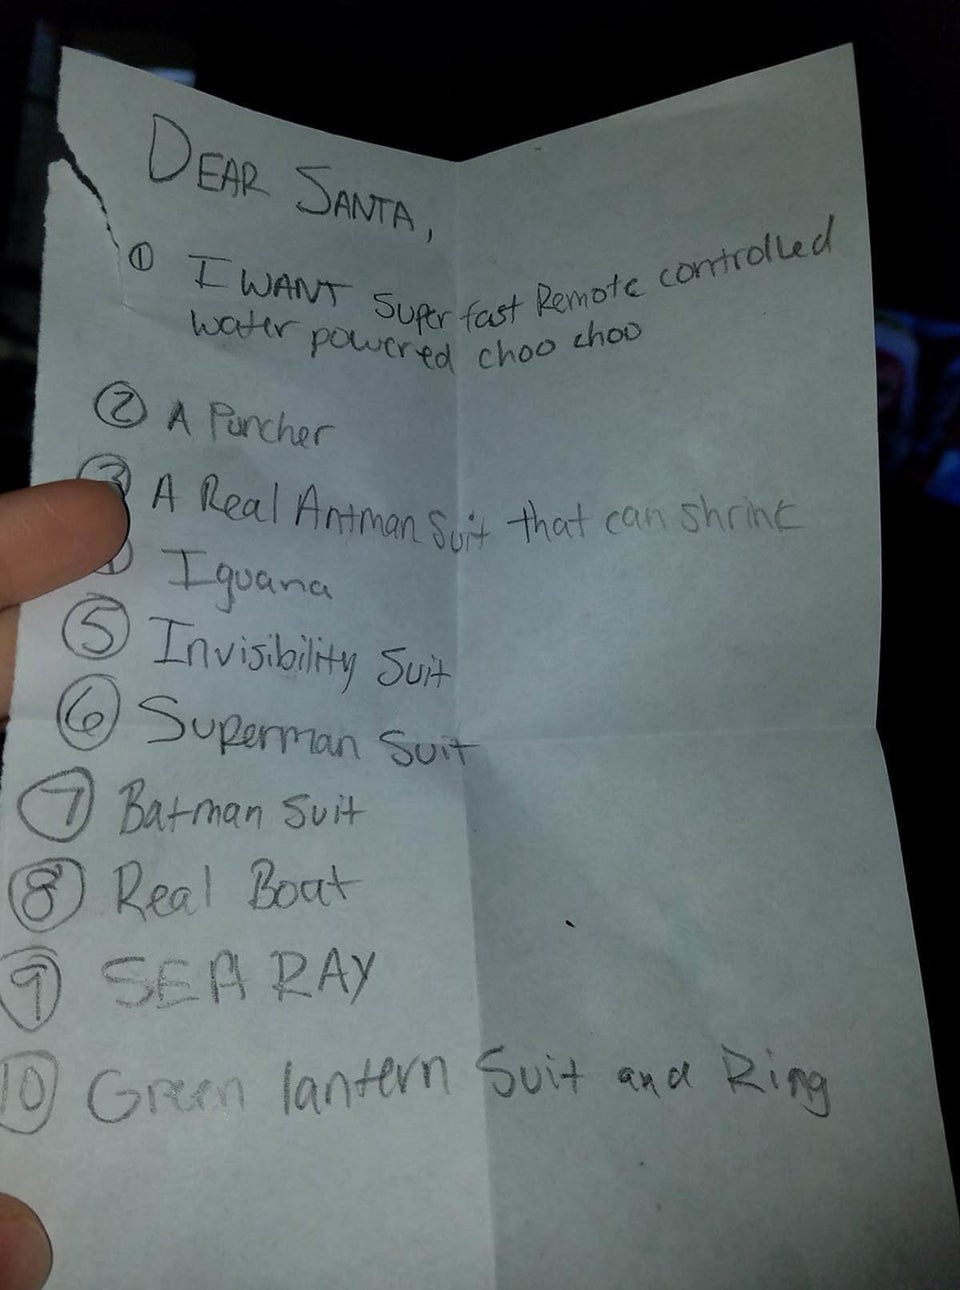 DEAR SANTA,
① I WANT Super fast Remote controlled
water powered choo choo
② A Puncher
③ A Real Antman Suit that can shrink
Iguana
⑤ Invisibility Suit
⑥ Superman Suit
⑦ Batman Suit
⑧ Real Boat
⑨ SEA RAY
⑩ Green lantern Suit and Ring